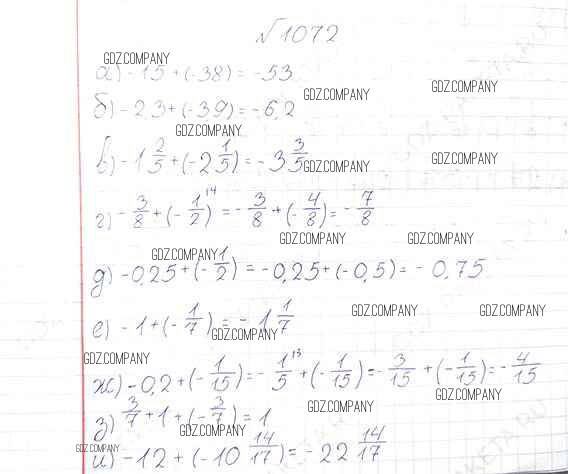 №1072
GDZ.COMPANY
а) -15 + (-38) = -53
GDZ.COMPANY GDZ.COMPANY
б) -2,3 + (-3,9) = -6,2
GDZ.COMPANY
в) -1 2/5 + (-2 1/5) = -3 3/5
GDZ.COMPANY GDZ.COMPANY
г) -3/8 + (-1/2)^14 = -3/8 + (-4/8) = -7/8
GDZ.COMPANY GDZ.COMPANY
GDZ.COMPANY
д) -0,25 + (-1/2) = -0,25 + (-0,5) = -0,75
GDZ.COMPANY GDZ.COMPANY
е) -1 + (-1/7) = -1 1/7
GDZ.COMPANY
GDZ.COMPANY
ж) -0,2 + (-1/15) = -1/5^13 + (-1/15) = -3/15 + (-1/15) = -4/15
GDZ.COMPANY GDZ.COMPANY
з) 3/7 + 1 + (-3/7) = 1
GDZ.COMPANY
GDZ.COMPANY
и) -12 + (-10 14/17) = -22 14/17